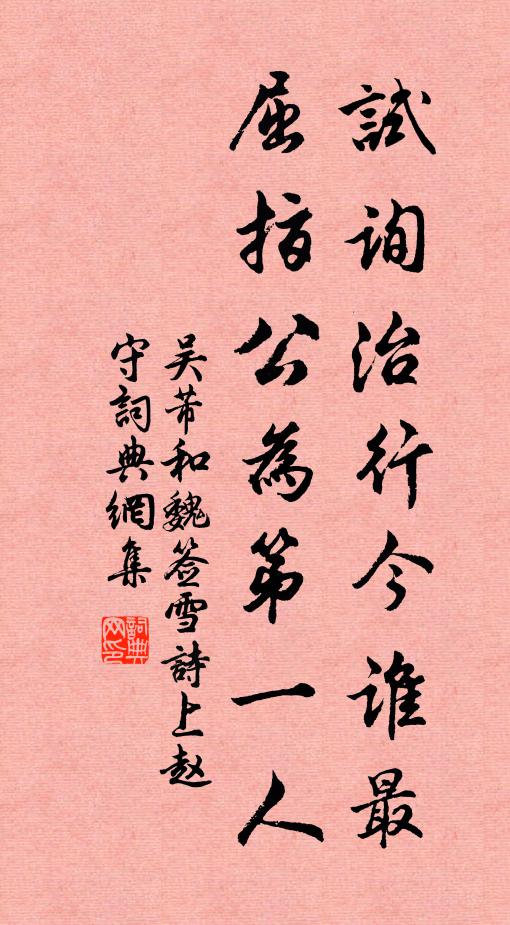 試询治行今谁最
屈指公為第一人
吴芾和魏签雪詩上赵
守詞典網集
詞典网印